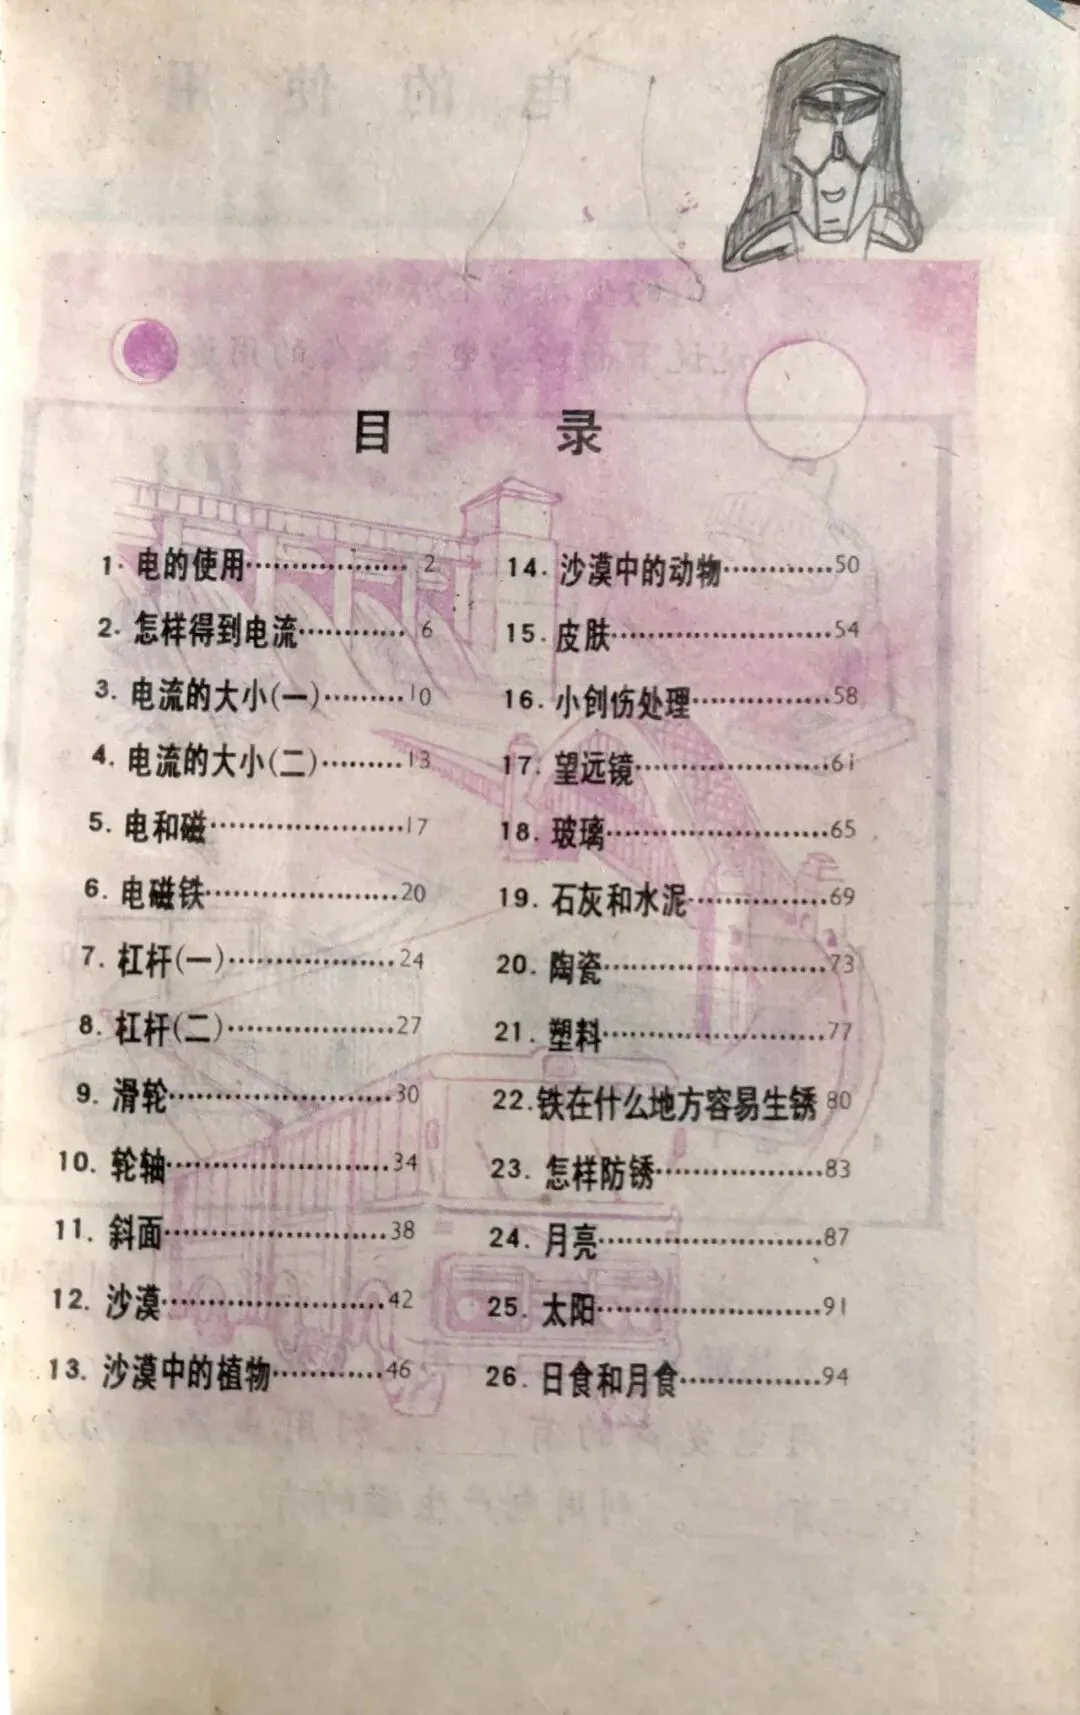 目 录
1. 电的使用………………2
2. 怎样得到电流…………6
3. 电流的大小(一)………10
4. 电流的大小(二)………13
5. 电和磁…………………17
6. 电磁铁…………………20
7. 杠杆(一)………………24
8. 杠杆(二)………………27
9. 滑轮……………………30
10. 轮轴……………………34
11. 斜面……………………38
12. 沙漠……………………42
13. 沙漠中的植物…………46
14. 沙漠中的动物…………50
15. 皮肤……………………54
16. 小创伤处理……………58
17. 望远镜…………………61
18. 玻璃……………………65
19. 石灰和水泥……………69
20. 陶瓷……………………73
21. 塑料……………………77
22. 铁在什么地方容易生锈 80
23. 怎样防锈………………83
24. 月亮……………………87
25. 太阳……………………91
26. 日食和月食……………94